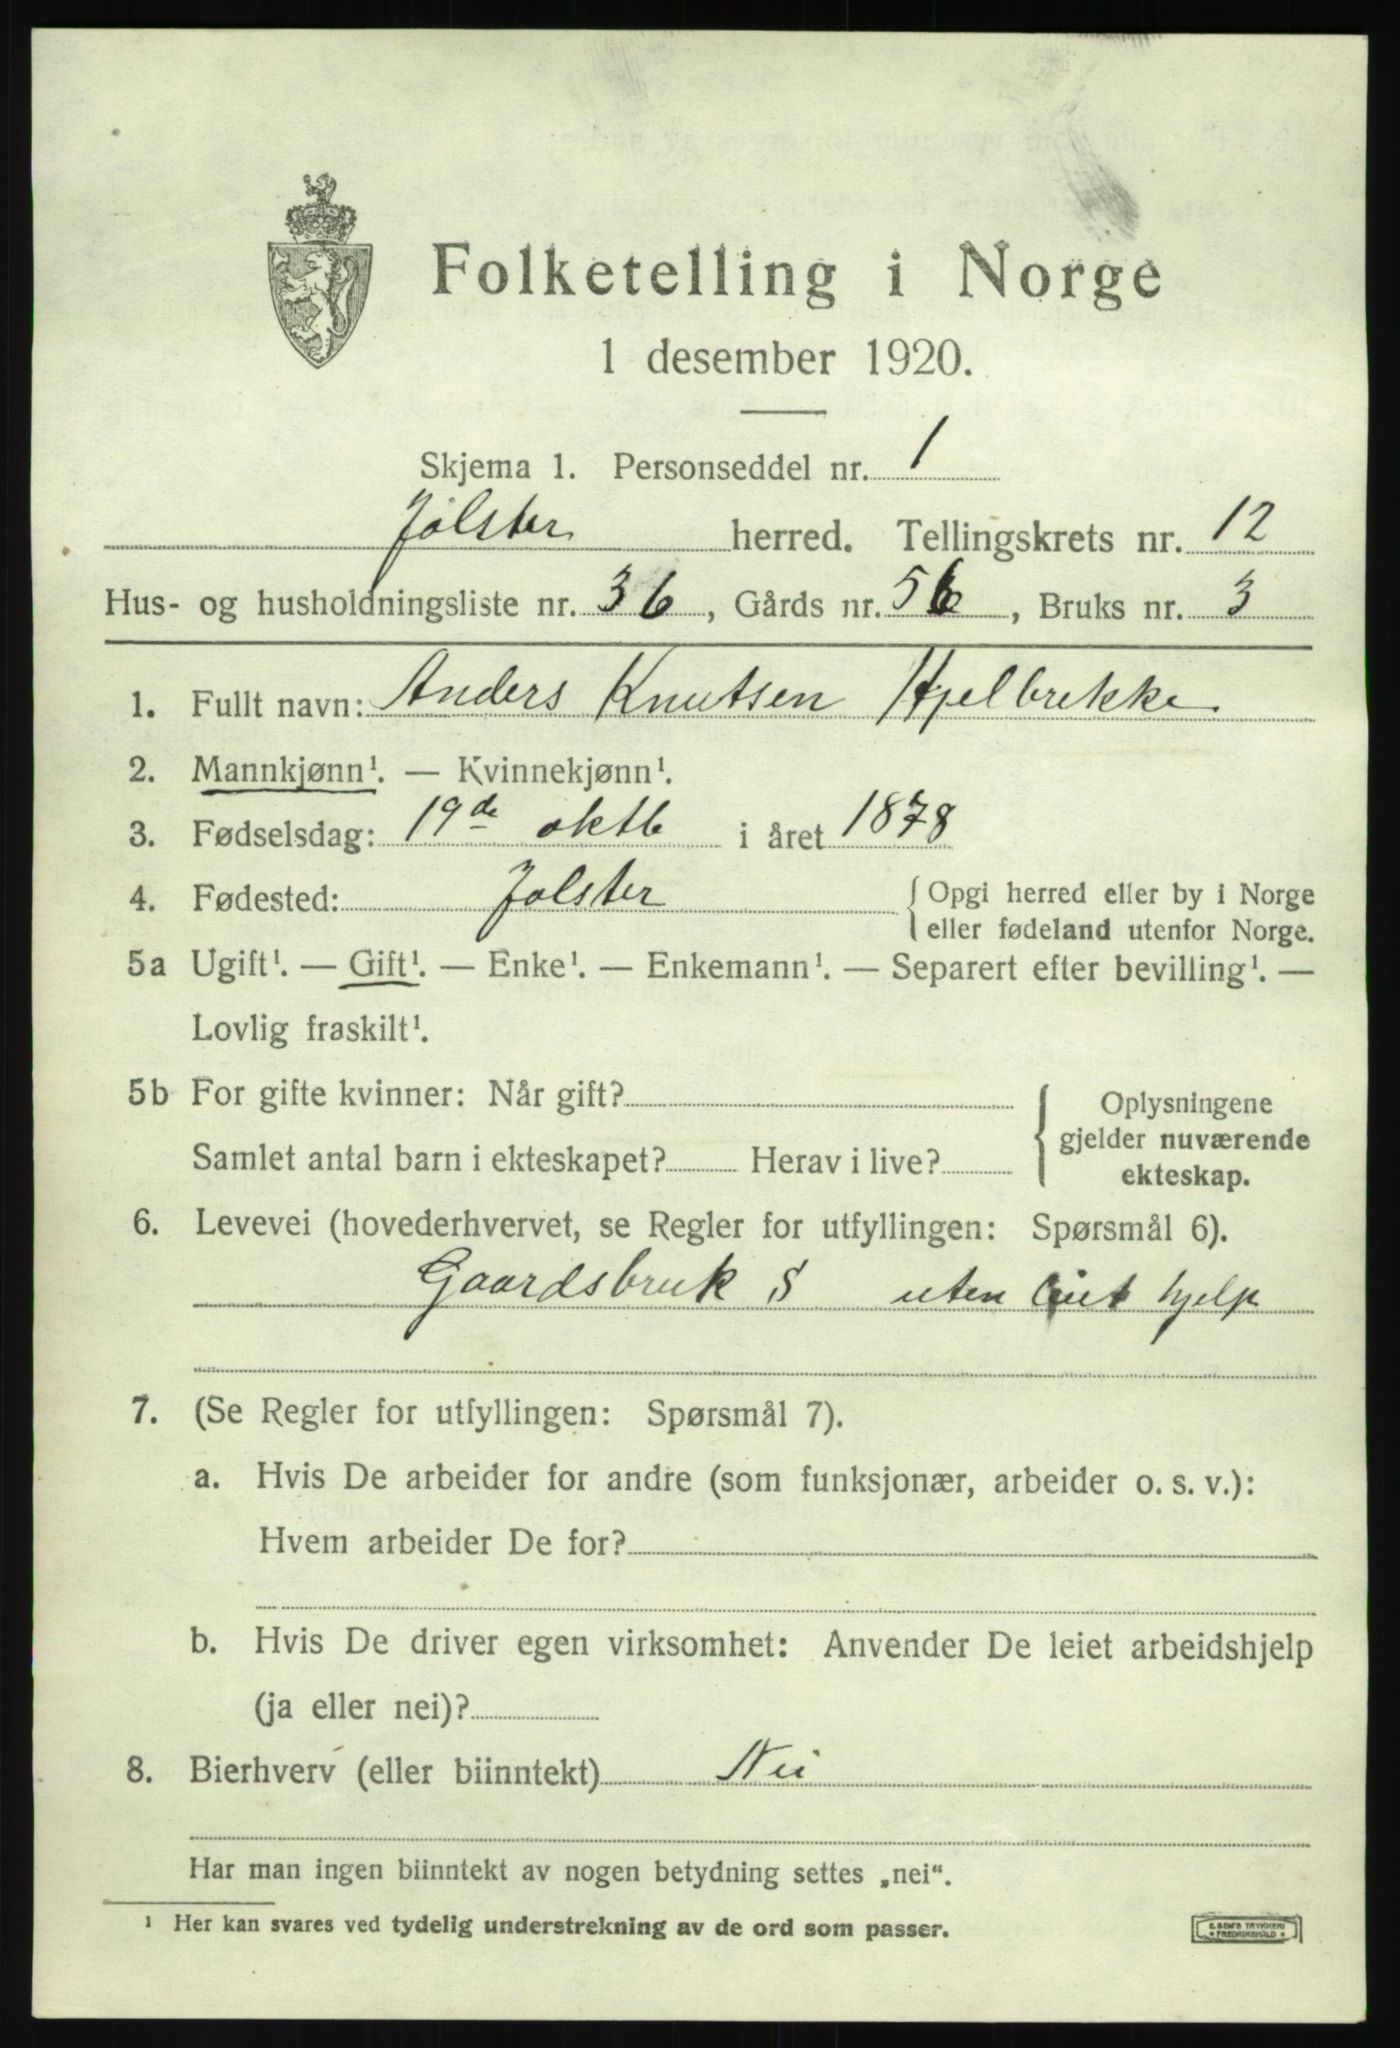 Folketelling i Norge
1 desember 1920.
Skjema 1. Personseddel nr. 1
Jølster herred. Tellingskrets nr. 12
Hus- og husholdningsliste nr. 36, Gårds nr. 56, Bruks nr. 3
1. Fullt navn: Anders Knutsen Hjelbrekke
2. Mannkjønn¹. — Kvinnekjønn¹.
3. Fødselsdag: 19de oktb i året 1878
4. Fødested: Jølster { Opgi herred eller by i Norge
eller fødeland utenfor Norge.
5a Ugift¹. — Gift¹. — Enke¹. — Enkemann¹. — Separert efter bevilling¹. —
Lovlig fraskilt¹.
5b For gifte kvinner: Når gift?
Samlet antal barn i ekteskapet? Herav i live?
{ Oplysningene
gjelder nuværende
ekteskap.
6. Levevei (hovederhvervet, se Regler for utfyllingen: Spørsmål 6).
Gaardsbruk S uten leiet hjelp
7. (Se Regler for utfyllingen: Spørsmål 7).
a. Hvis De arbeider for andre (som funksjonær, arbeider o. s. v.):
Hvem arbeider De for?
b. Hvis De driver egen virksomhet: Anvender De leiet arbeidshjelp
(ja eller nei)?
8. Bierhverv (eller biinntekt) Nei
Har man ingen biinntekt av nogen betydning settes „nei“.
¹ Her kan svares ved tydelig understrekning av de ord som passer.
E. SEM'S TRYKKERI
* FREDRIKSHALD *